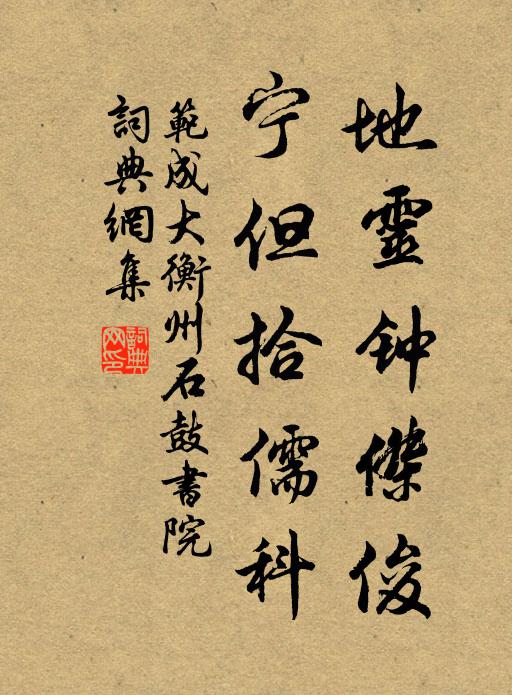 地靈钟傑俊
宁但拾儒科
範成大衡州石鼓書院
詞典網集
詞典网印